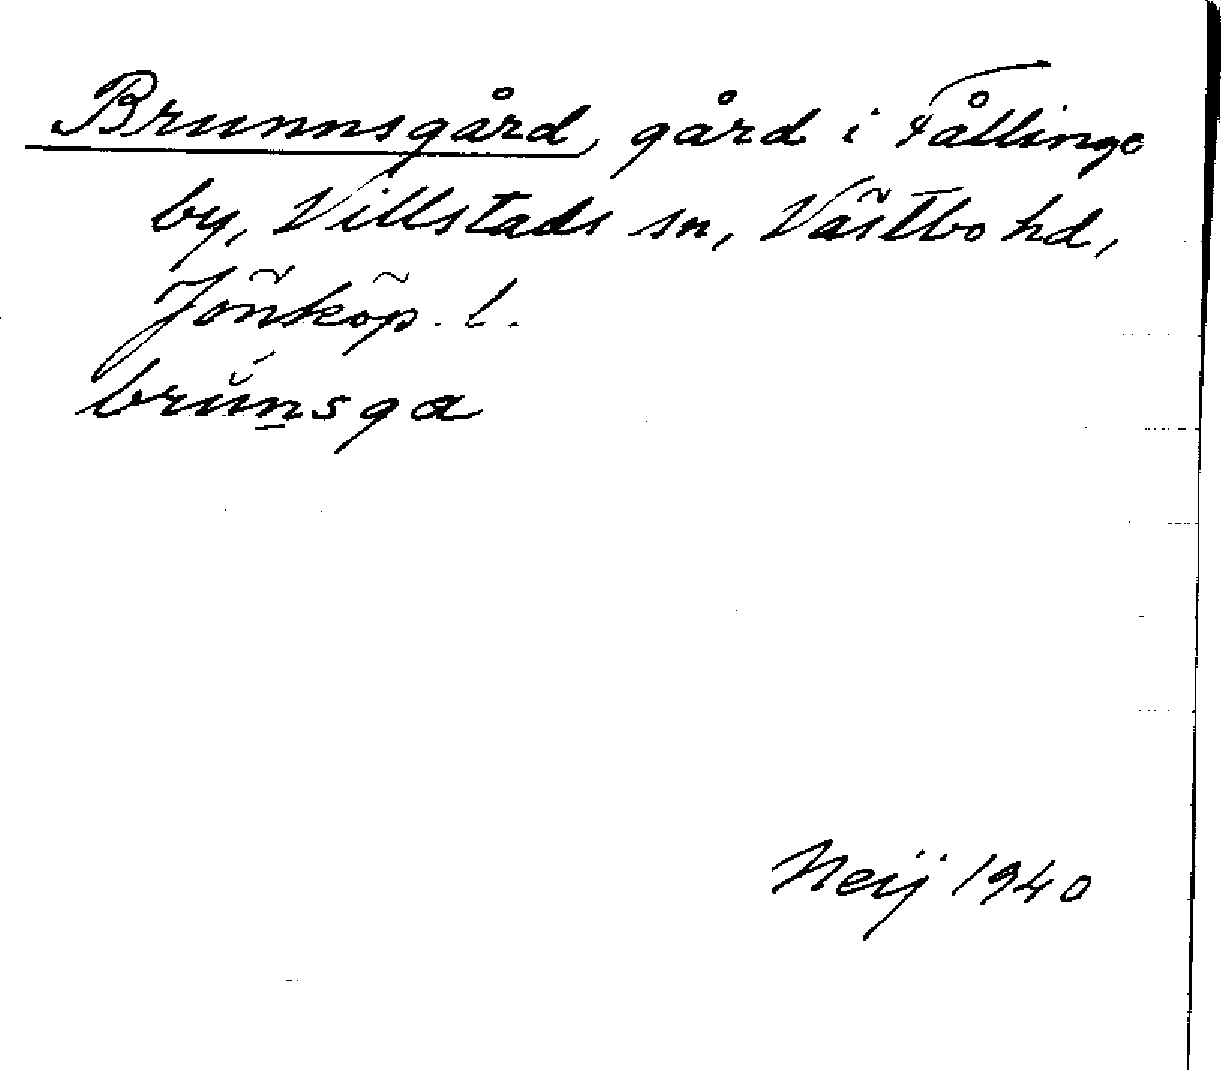 Brunnsgård, gård i Fållinge
by, Villstads sn, Västbo hd,
Jönköp. l.
brŭn̲sga
Neij 1940